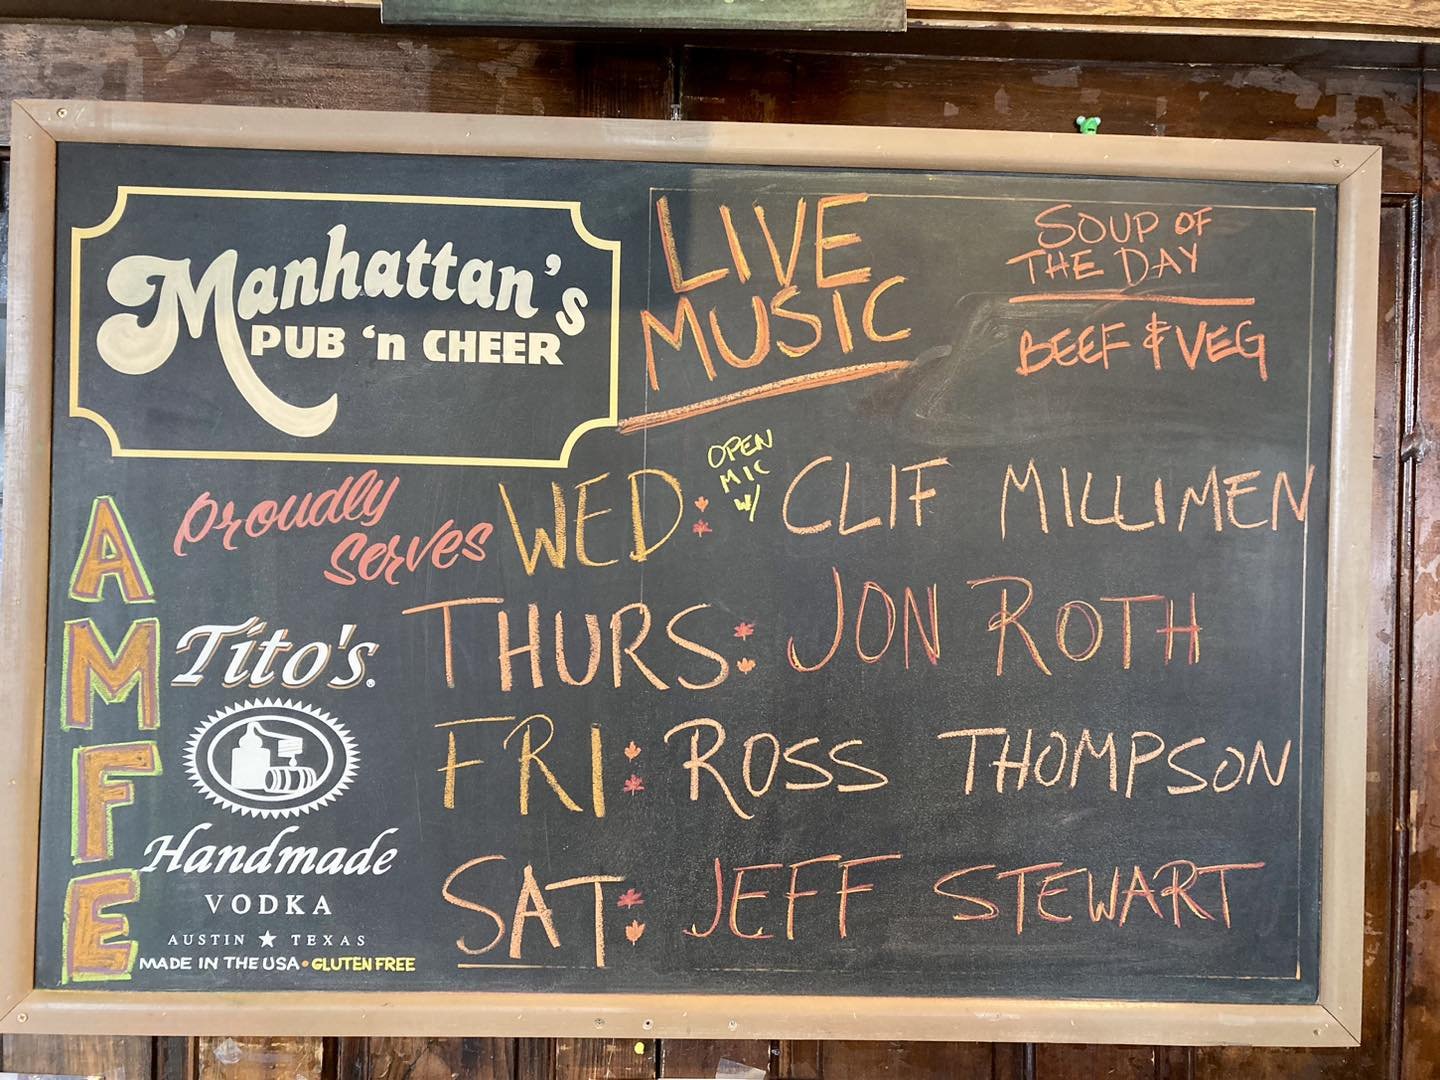 Manhattan's
PUB 'n CHEER
LIVE
MUSIC
SOUP OF
THE DAY
BEEF & VEG
AMFE
Proudly
Serves
Tito's.
Handmade
VODKA
AUSTIN ★ TEXAS
MADE IN THE USA • GLUTEN FREE
WED: OPEN MIC W/ CLIF MILLIMEN
THURS: JON ROTH
FRI: ROSS THOMPSON
SAT: JEFF STEWART